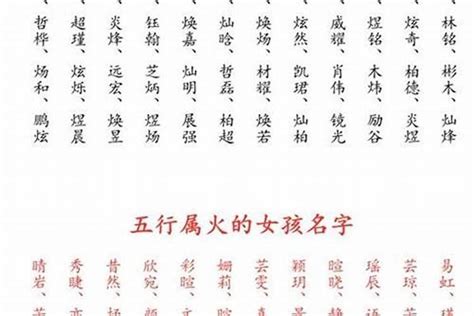 哲桦、炀和、鹏炫
超瑾、炫烁、煜晨
炎烽、远宏、焕昱
钰翰、芝炳、煜炀
焕嘉、灿明、展强
灿晗、哲磊、柏超
焕炀、材耀、焕若
炫然、凯珺、灿
威耀、肖伟、镜光
煜铭、木炜、励谷
炫奇、柏德、炎煜
林铭、彬木、灿烽
五行属火的女孩名字
晴岩、
秀睫、
昔然、
欣宛、
彩暄、
姗莉、
芸雯、
颖玥、
暄晓、
瑶辰、
芸琼、
易虹、